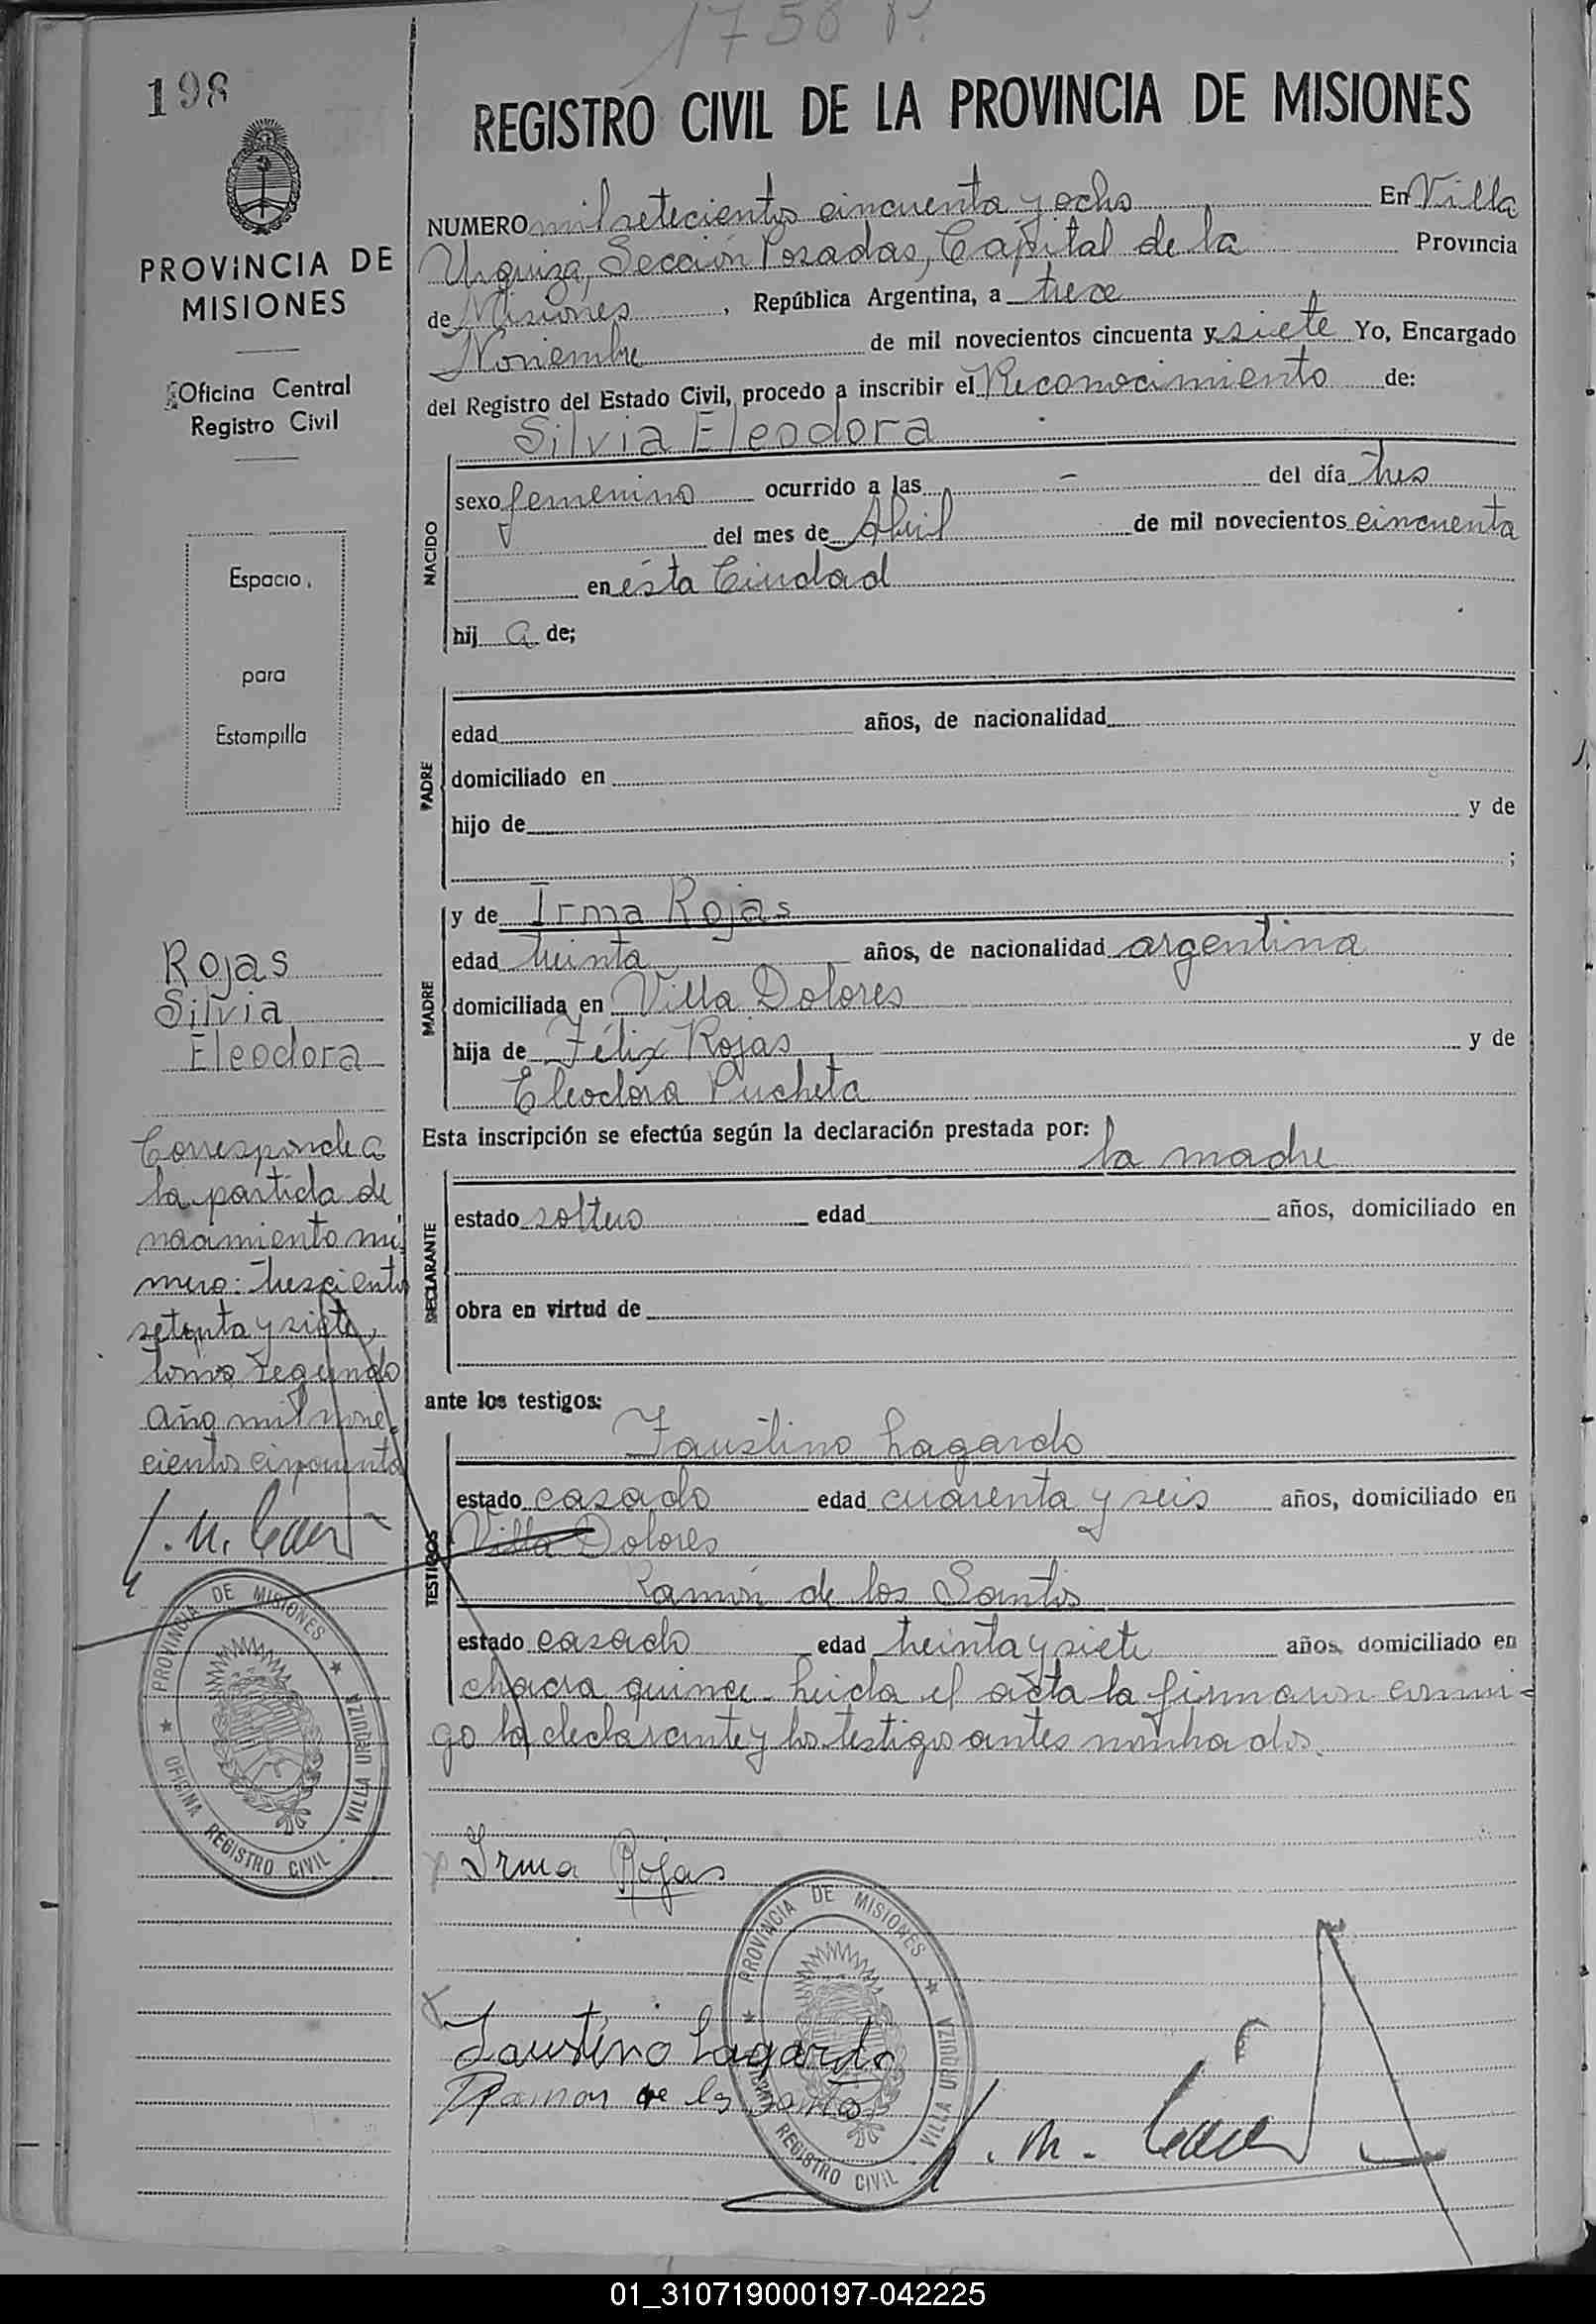 1758 P.
198
REGISTRO CIVIL DE LA PROVINCIA DE MISIONES
PROVINCIA DE
MISIONES
Oficina Central
Registro Civil
Espacio
para
Estampilla
NUMERO mil setecientos cincuenta y ocho En Villa
Urquiza, Sección Posadas, Capital de la Provincia
de Misiones, República Argentina, a trece
Noviembre de mil novecientos cincuenta y siete Yo, Encargado
del Registro del Estado Civil, procedo a inscribir el Reconocimiento de:
Silvia Eleodora
NACIDO
sexo femenino ocurrido a las - del día tres
del mes de Abril de mil novecientos cincuenta
en ésta Ciudad
hij a de;
PADRE
edad años, de nacionalidad
domiciliado en
hijo de y de
;
MADRE
y de Irma Rojas
edad treinta años, de nacionalidad argentina
domiciliada en Villa Dolores
hija de Félix Rojas y de
Eleodora Pucheta
Esta inscripción se efectúa según la declaración prestada por:
la madre
DECLARANTE
estado soltero edad años, domiciliado en
obra en virtud de
ante los testigos:
TESTIGOS
Faustino Lagardo
estado casado edad cuarenta y seis años, domiciliado en
Villa Dolores
Ramón de los Santos
estado casado edad treinta y siete años, domiciliado en
chacra quince. Leida el acta la firmaron conmi-
go la declarante y los testigos antes nombrados.
Irma Rojas
Faustino Lagardo
Ramon de los Santos
PROVINCIA DE MISIONES
OFICINA REGISTRO CIVIL · VILLA URQUIZA
Rojas
Silvia
Eleodora
Corresponde a
la partida de
nacimiento nú-
mero: trescientos
setenta y siete,
tomo segundo
año mil nove-
cientos cincuenta
PROVINCIA DE MISIONES
OFICINA REGISTRO CIVIL · VILLA URQUIZA
01_310719000197-042225